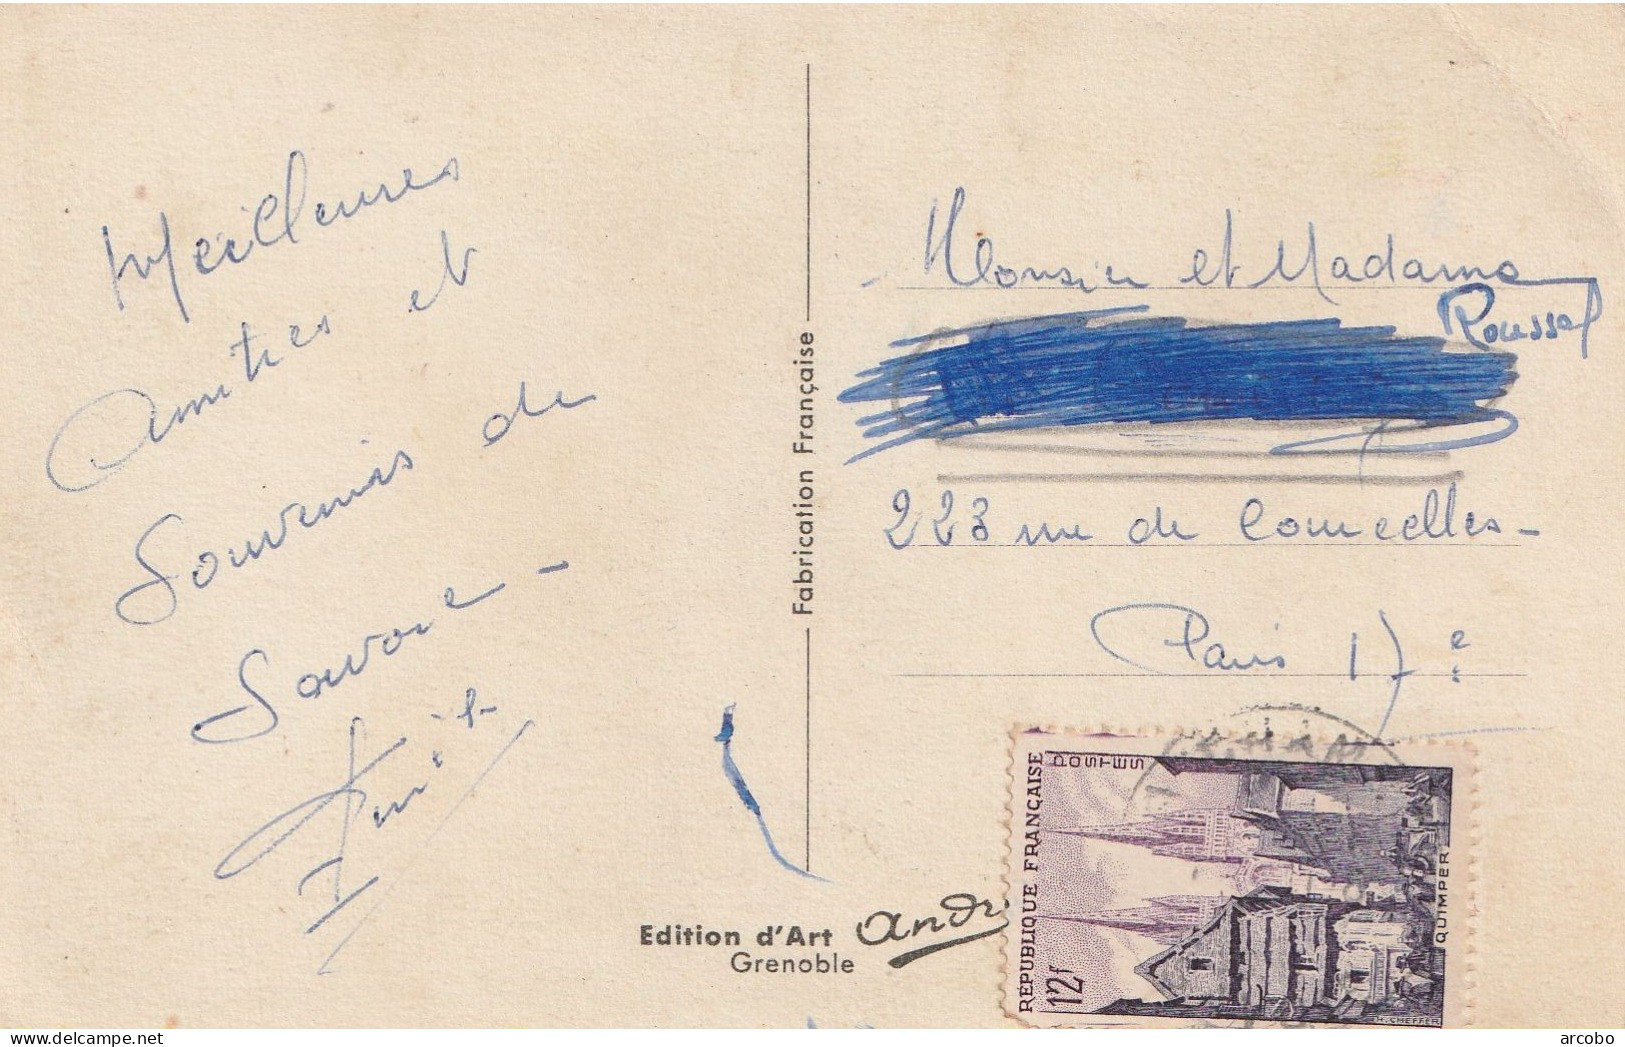 Meilleures
amitiés et
Souvenirs de
Savoie -
- Monsieur et Madame
Roussel
223 rue de Courcelles -
Paris 17e
Fabrication Française
Edition d'Art
Grenoble
RÉPUBLIQUE FRANÇAISE
POSTES
12f
QUIMPER
H. CHEFFER
www.delcampe.net
arcobo